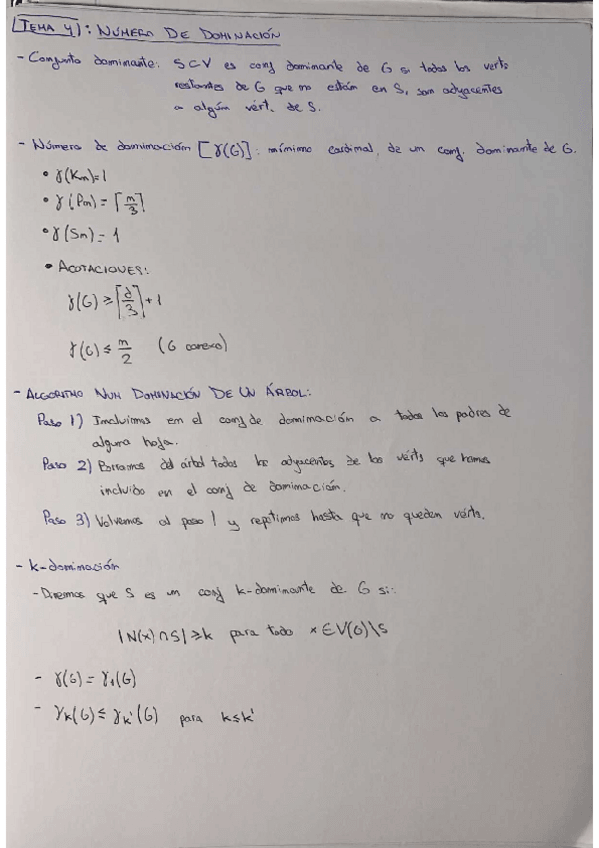 TEMA 4): NÚMERO DE DOMINACIÓN
- Conjunto dominante: S⊂V es conj dominante de G si todos los verts
restantes de G que no están en S, son adyacentes
a algún vért. de S.
- Número de dominación [γ(G)]: mínimo cardinal, de un conj. dominante de G.
• γ(Kn)=1
• γ(Pn) = ⌈n/3⌉
• γ(Sn) = 1
• ACOTACIONES:
γ(G) ≥ ⌈d/3⌉ + 1
γ(G) ≤ n/2 (G conexo)
- ALGORITMO NUM DOMINACIÓN DE UN ÁRBOL:
Paso 1) Incluimos en el conj de dominación a todos los padres de
alguna hoja.
Paso 2) Borramos del árbol todos los adyacentes de los vérts que hemos
incluido en el conj de dominación.
Paso 3) Volvemos al paso 1 y repetimos hasta que no queden vérts.
- k-dominación
- Diremos que S es un conj k-dominante de G si:
|N(x)∩S|≥k para todo x∈V(G)\S
- γ(G) = γ1(G)
- γk(G) ≤ γk'(G) para k≤k'